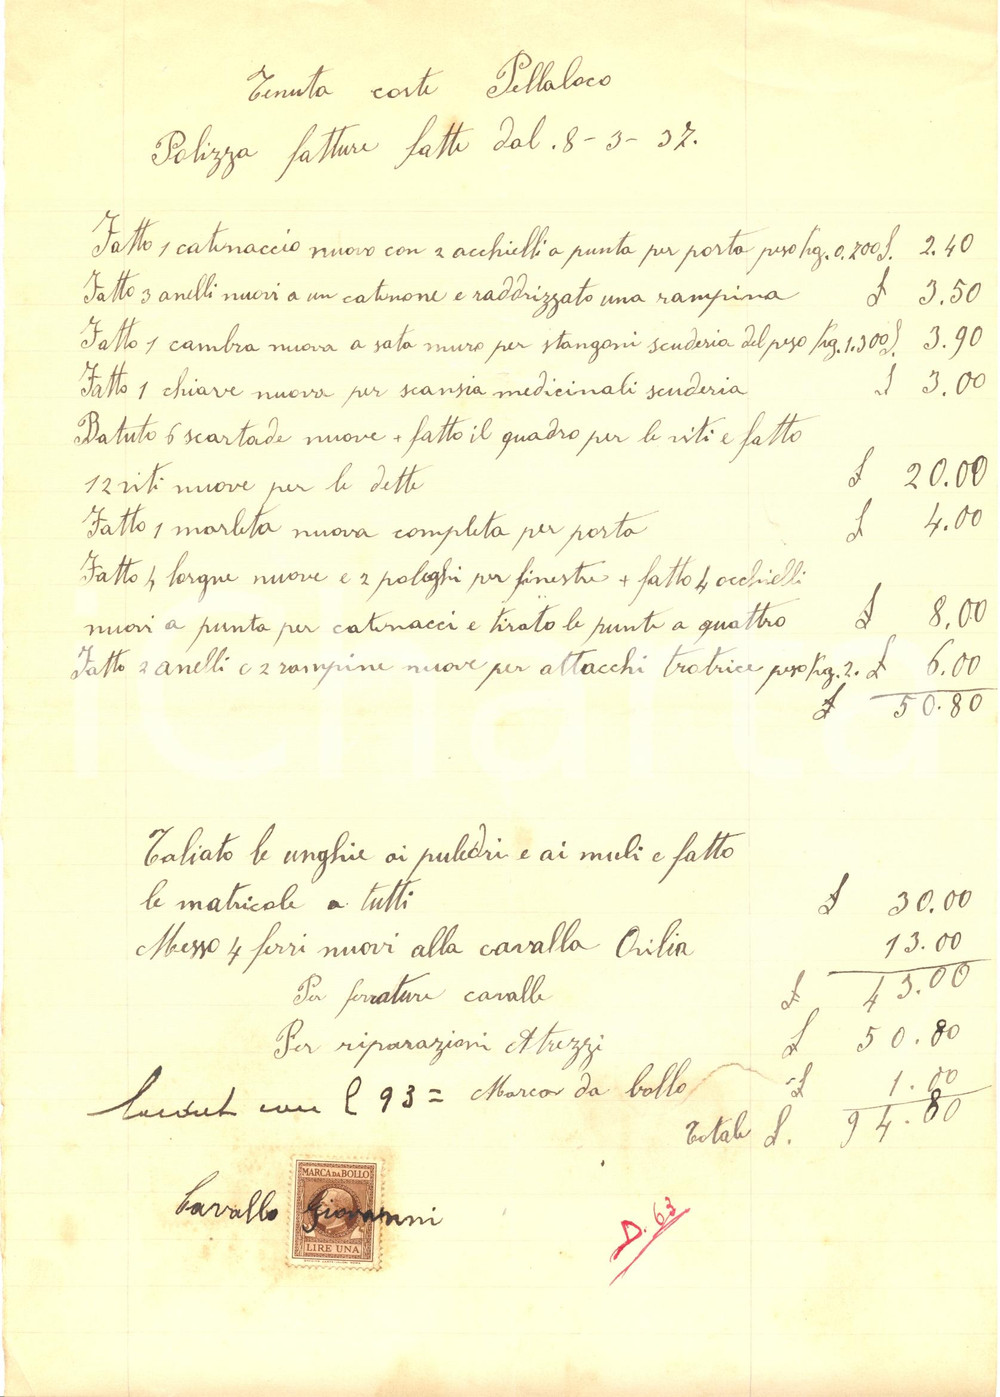 Tenuta corte Pellaloco
Polizza fatture fatte dal . 8 - 3 - 37.
Fatto 1 catenaccio nuovo con 2 occhielli a punta per porta peso Kg. 0.700 £. 2.40
Fatto 3 anelli nuovi a un catenone e raddrizzato una rampina £ 3.50
Fatto 1 cambra nuova a sata muro per stangoni scuderia del peso Kg. 1.300 £. 3.90
Fatto 1 chiave nuova per scansia medicinali scuderia £ 3.00
Batuto 6 scartade nuove + fatto il quadro per le viti e fatto
12 viti nuove per le dette £ 20.00
Fatto 1 morleta nuova completa per porta £ 4.00
Fatto 4 lorgne nuove e 2 poleghi per finestre + fatto 4 occhielli
nuovi a punta per catenacci e tirato le punte a quattro £ 8.00
Fatto 2 anelli e 2 rampine nuove per attacchi tratrice peso Kg. 2. £ 6.00
£ 50.80
Taliato le unghie ai puledri e ai muli e fatto
le matricole a tutti £ 30.00
Messo 4 ferri nuovi alla cavalla Orilia 13.00
Per ferrature cavalle £ 43.00
Per riparazioni Atrezzi £ 50.80
£ 93 = Marca da bollo £ 1.00
Totale £. 94.80
Cavallo Giovanni
MARCA DA BOLLO
LIRE UNA
D. 63
renata